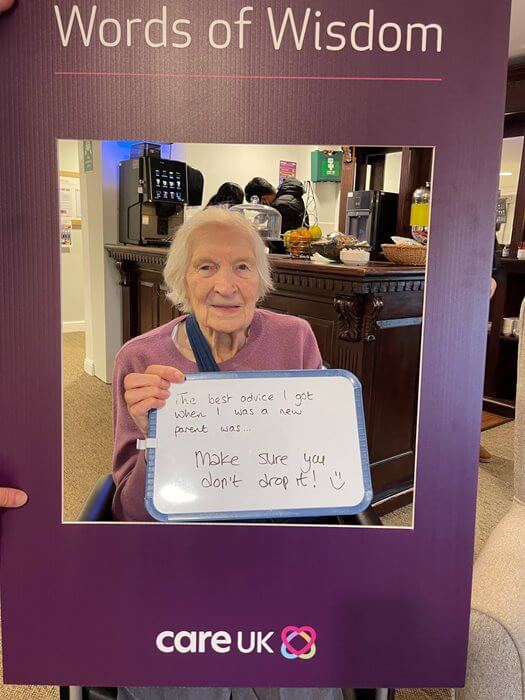 Words of Wisdom
The best advice I got
when I was a new
parent was...
Make sure you
don't drop it!
care UK